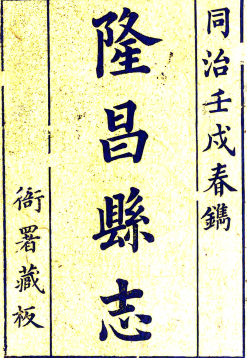 同治壬戌春鐫
隆昌縣志
衙署藏板